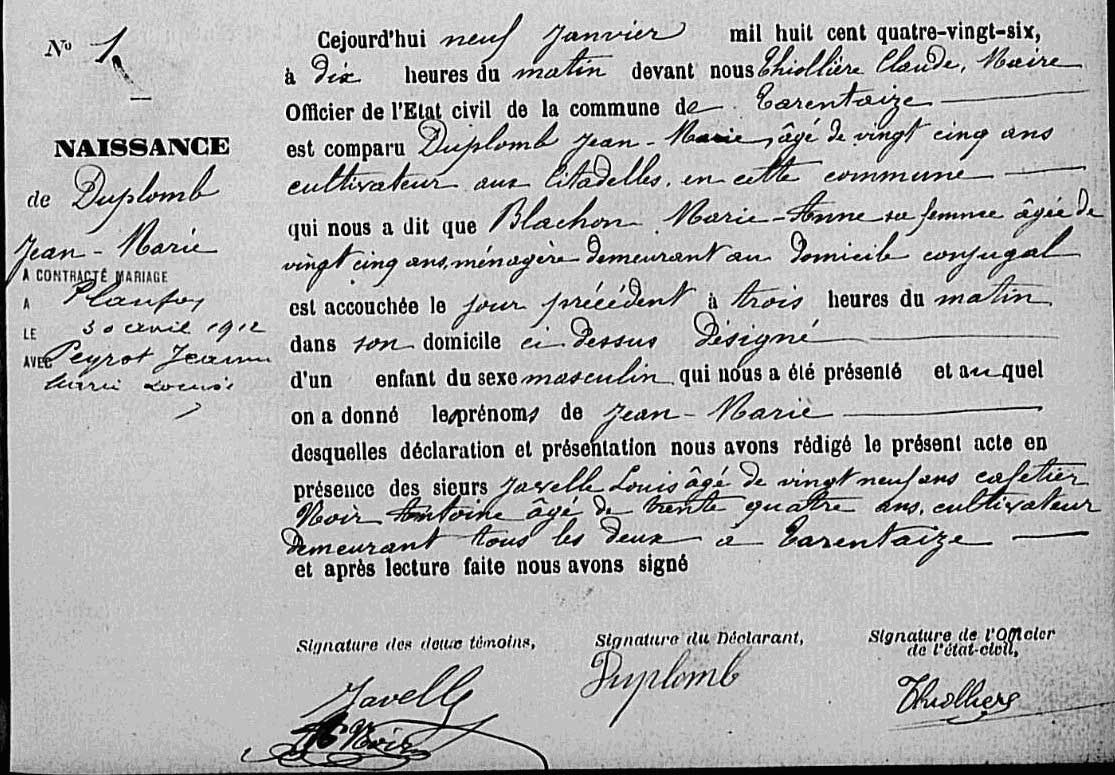 No 1
NAISSANCE
de Duplomb
Jean-Marie
A CONTRACTÉ MARIAGE
A Planfoy
LE 30 avril 1912
AVEC Peyrot Jeanne
Marie Louise
Cejourd'hui neuf Janvier mil huit cent quatre-vingt-six,
à dix heures du matin devant nous Thiollière Claude, Maire
Officier de l'Etat civil de la commune de Tarentaize
est comparu Duplomb Jean-Marie, âgé de vingt cinq ans
cultivateur aux Citadelles, en cette commune
qui nous a dit que Blachon Marie-Anne sa femme âgée de
vingt cinq ans, ménagère demeurant au domicile conjugal
est accouchée le jour précédent à trois heures du matin
dans son domicile ci dessus désigné
d'un enfant du sexe masculin qui nous a été présenté et auquel
on a donné les prénoms de Jean-Marie
desquelles déclaration et présentation nous avons rédigé le présent acte en
présence des sieurs Javelle Louis âgé de vingt neuf ans cafetier
Noir Antoine âgé de trente quatre ans, cultivateur
demeurant tous les deux à Tarentaize
et après lecture faite nous avons signé
Signature des deux témoins,
Signature du Déclarant,
Signature de l'Officier
de l'état-civil,
Javelle
Duplomb
Thiolliere
Noir